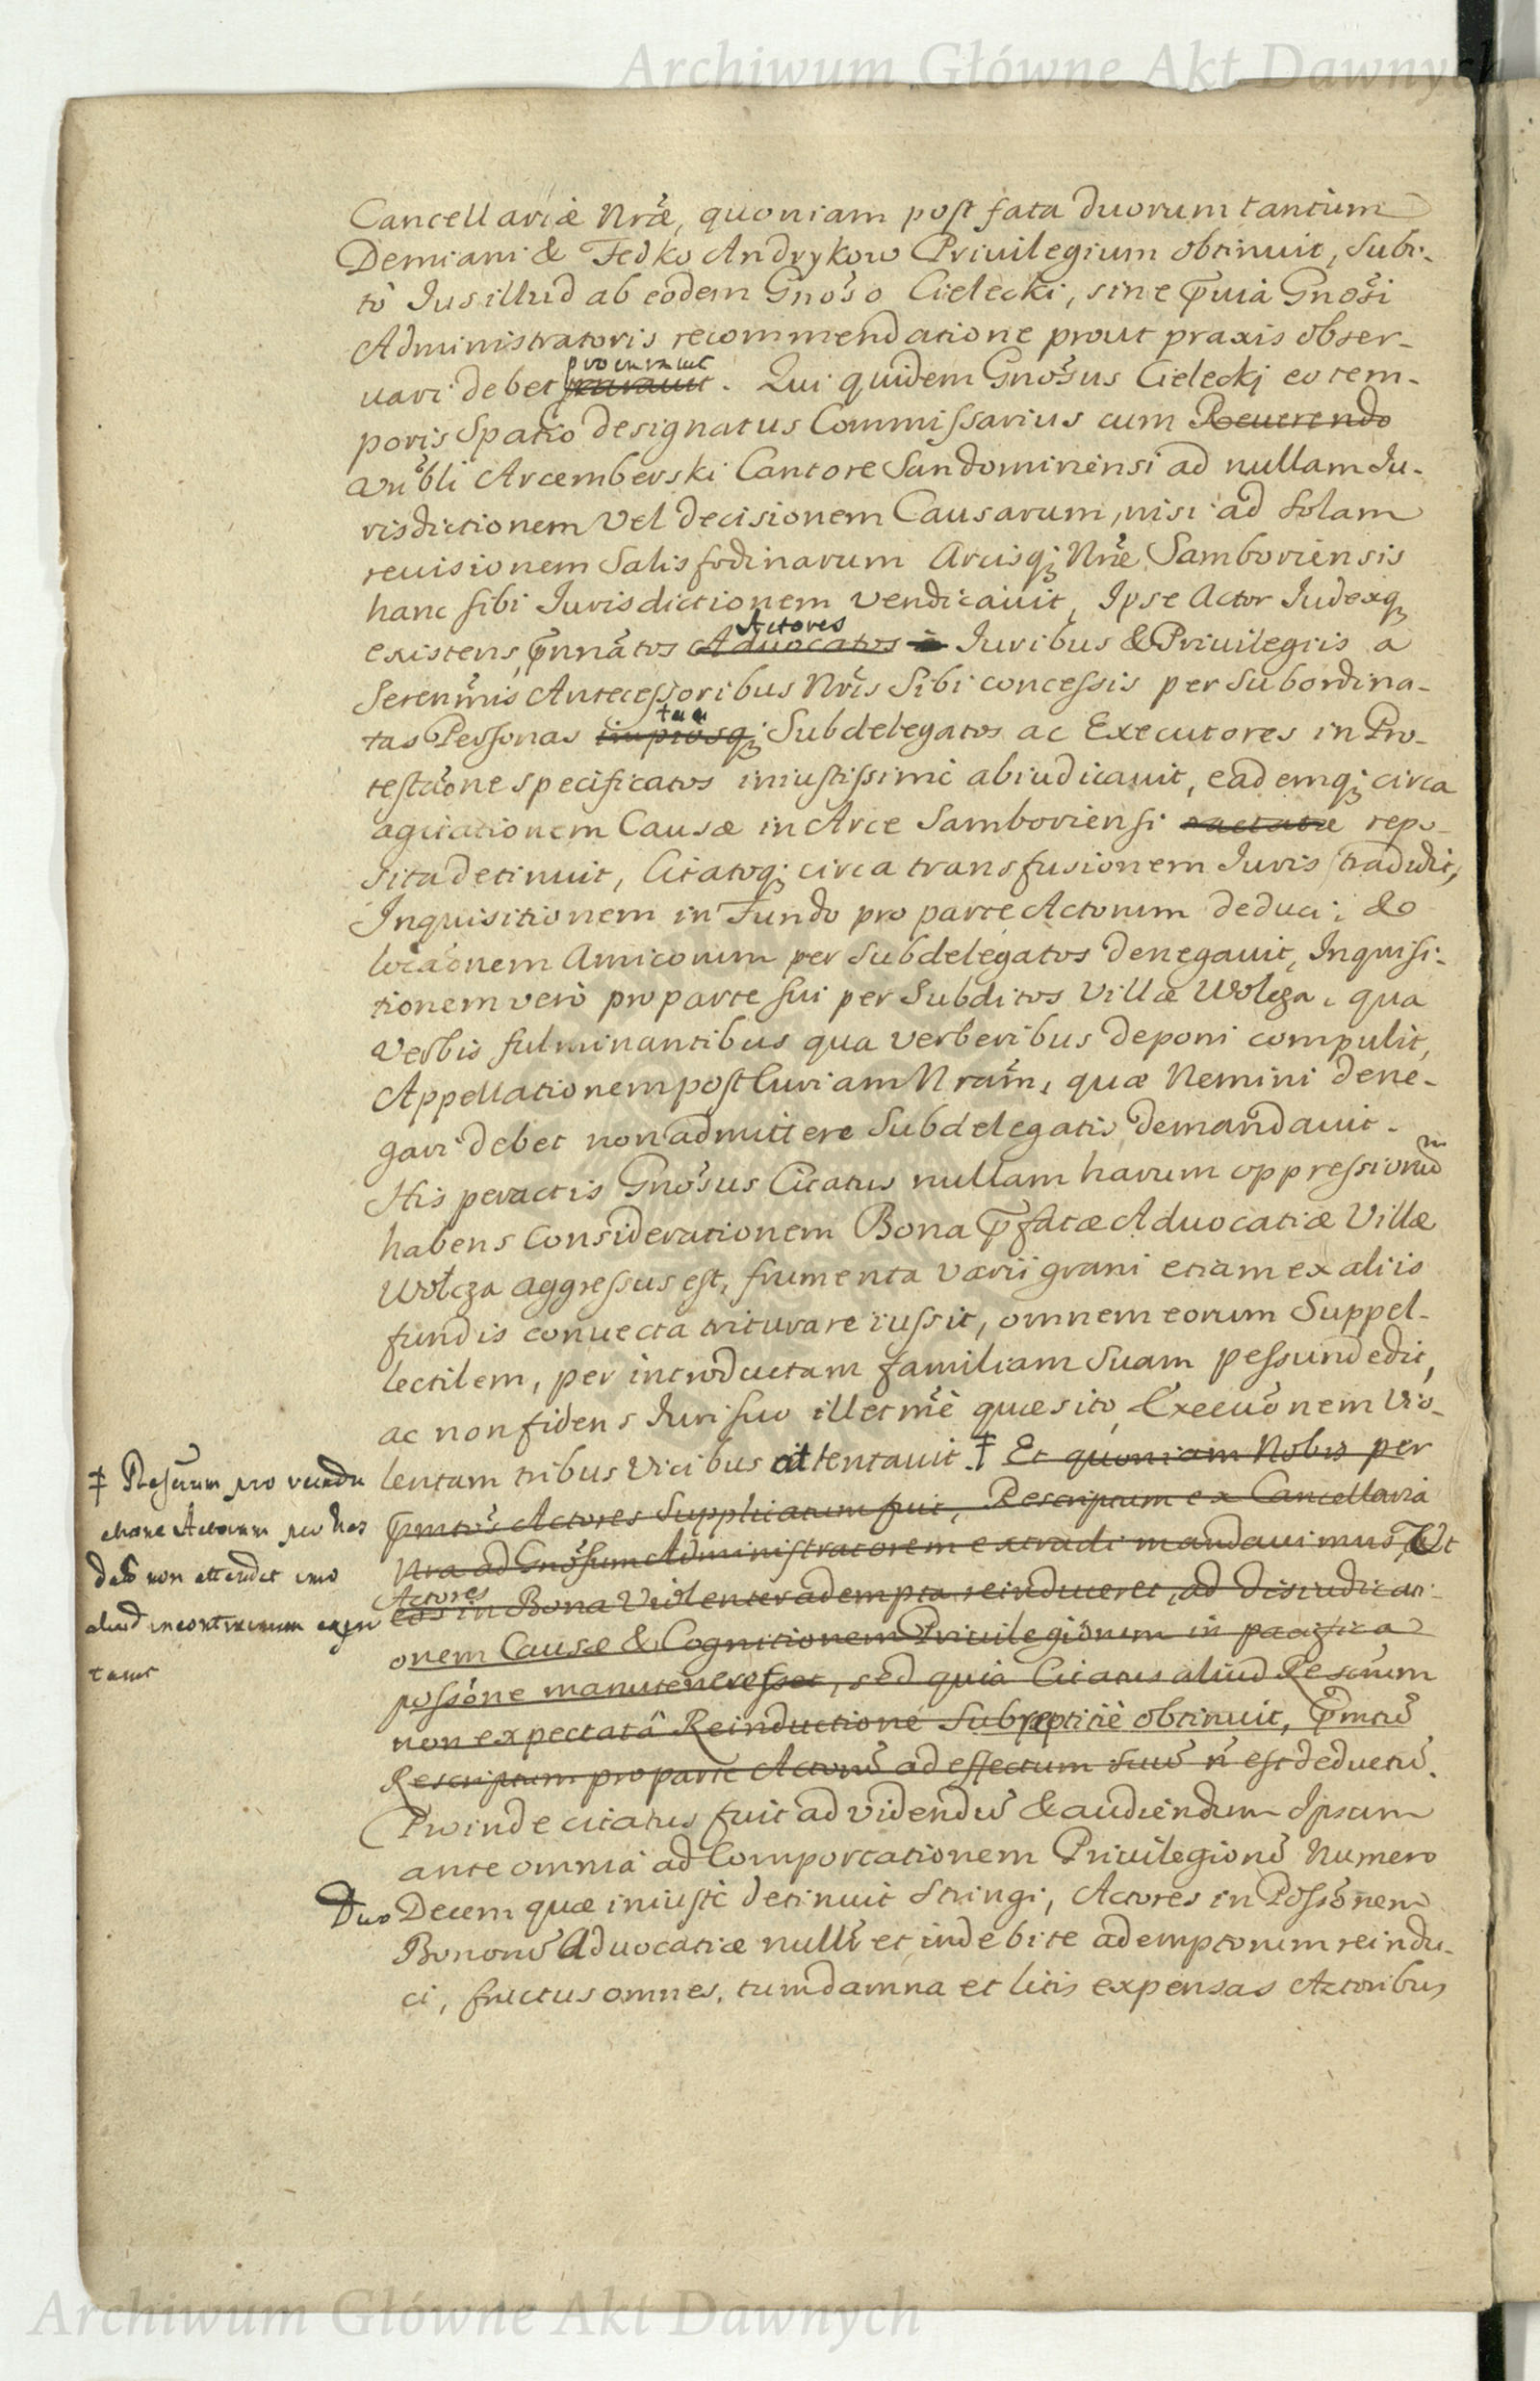 Archiwum Główne Akt Dawnych
Cancellariæ Nræ, quoniam post fata duorum tantum
Demiani & Fedko Andrykow Priuilegium obtinuit, Subi-
tò Jus illud ab eodem Gnoso Cielecki, sine p̄uia Gnosi
Administratoris recommendatione prout praxis obser-
procurauit
uari debet parauit. Qui quidem Gnosus Cielecki eo tem-
poris Spatio designatus Commissarius cum Reuerendo
Vnbli Arcemberski Cantore Sandomiriensi ad nullam Ju-
risdictionem vel decisionem Causarum, nisi ad solam
reuisionem Salisfodinarum Arcisq; Nræ Samboriensis
hanc sibi Jurisdictionem vendicauit, Ipse Actor Judexq;
Actores
existens, p̄nnatos Aduocatos a Juribus & Priuilegiis a
Serenmis Antecessoribus Nris Sibi concessis per Subordina-
tas Personas impiosq; Subdelegatos ac Executores in Pro-
testaone specificatos iniustissimè abiudicauit, eademq; circa
agitationem Causæ in Arce Samboriensi repo-
sita detinuit, Citatoq; circa transfusionem Juris tradidit,
Inquisitionem in Fundo pro parte Actorum deduci, &
locaonem Amicorum per Subdelegatos denegauit, Inquisi-
tionem verò pro parte sui per Subditos Villæ Wolcza, qua
verbis fulminantibus qua verberibus deponi compulit,
Appellationem post Curiam Nram, quæ Nemini dene-
gari debet non admittere Subdelegatis demandauit.
His peractis Gnosus Citatus nullam harum oppressionum
habens Considerationem Bona p̄fatæ Aduocatiæ Villæ
Wołcza aggressus est, frumenta varii grani etiam ex aliis
fundis conuecta triturare iussit, omnem eorum Suppel-
lectilem, per introductam familiam Suam pessundedit,
ac non fidens Juri suo illetmè quæsito, Execuonem Vio-
lentam tribus Vicibus attentauit ‡ Et quoniam Nobis per
p̄mtos Actores Supplicatum fuit, Rescriptum ex Cancellaria
Nra ad Gnosum Administratorem extradi mandauimus, Ut
Actores
eos in Bona Violenter adempta reinduceret, ad disiudicati-
onem Causæ & Cognitionem Priuilegiorum in pacifica
possone manuteneret, sed quia Citatus aliud Rescrum
non expectatâ Reinductione Subreptitiè obtinuit, p̄mtũ
Rescriptum pro parte Actorũ ad effectum suũ ñ est deductũ.
‡ Rescrum pro reindu
ctione Actorum per nos
datũ non attendit imo
aliud in contrarium
Proinde citatus fuit ad videndũ & audiendum Ipsum
ante omnia ad Comportationem Priuilegiorũ Numero
Duo Decem quæ iniustè detinuit Stringi, Actores in Possonem
Bonorũ Aduocatiæ nullr et indebite ademptorum reindu-
ci, fructus omnes, tum damna et litis expensas Actoribus
Archiwum Główne Akt Dawnych